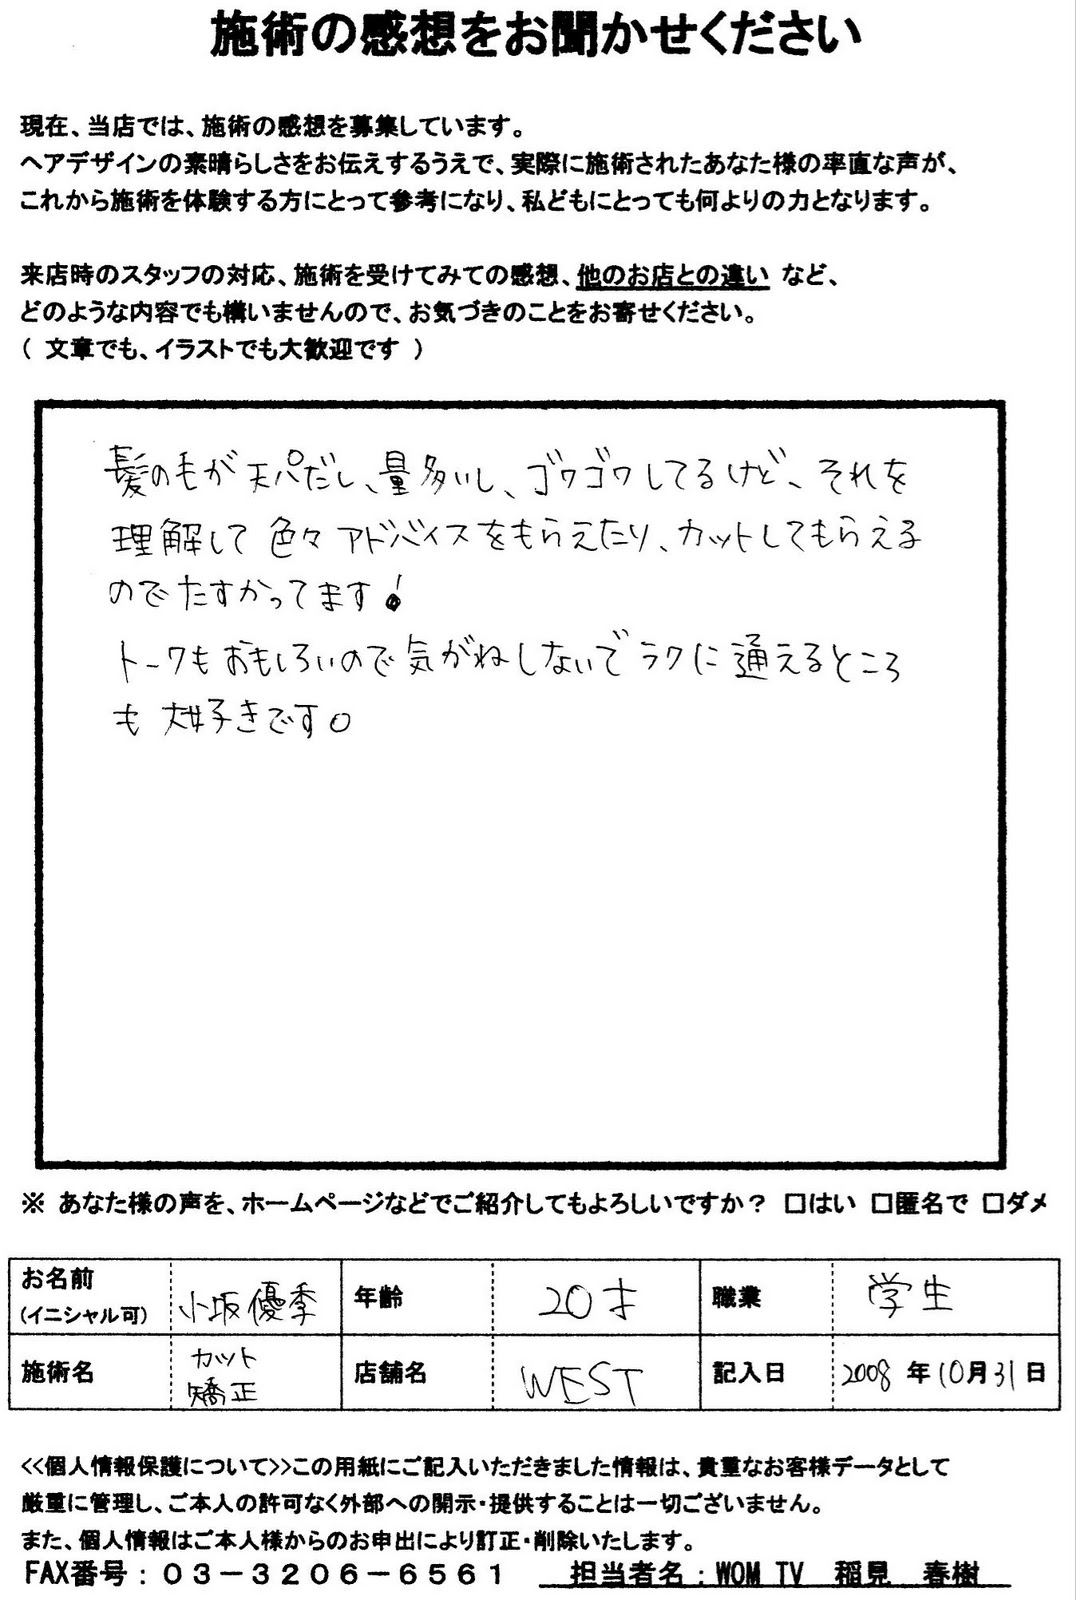 施術の感想をお聞かせください
現在、当店では、施術の感想を募集しています。
ヘアデザインの素晴らしさをお伝えするうえで、実際に施術されたあなた様の率直な声が、
これから施術を体験する方にとって参考になり、私どもにとっても何よりの力となります。
来店時のスタッフの対応、施術を受けてみての感想、他のお店との違い など、
どのような内容でも構いませんので、お気づきのことをお寄せください。
（ 文章でも、イラストでも大歓迎です ）
髪の毛が天パだし、量多いし、ゴワゴワしてるけど、それを
理解して 色々 アドバイスをもらえたり、カットしてもらえる
のでたすかってます!
トークもおもしろいので気がねしないでラクに通えるところ
も 大好きです。
※ あなた様の声を、ホームページなどでご紹介してもよろしいですか？ □はい □匿名で □ダメ
お名前 (イニシャル可) 小坂優季 年齢 20才 職業 学生
施術名 カット 矯正 店舗名 WEST 記入日 2008 年 10月 31日
<<個人情報保護について>>この用紙にご記入いただきました情報は、貴重なお客様データとして
厳重に管理し、ご本人の許可なく外部への開示・提供することは一切ございません。
また、個人情報はご本人様からのお申出により訂正・削除いたします。
FAX番号：０３－３２０６－６５６１ 担当者名：WOM TV 稲見 春樹